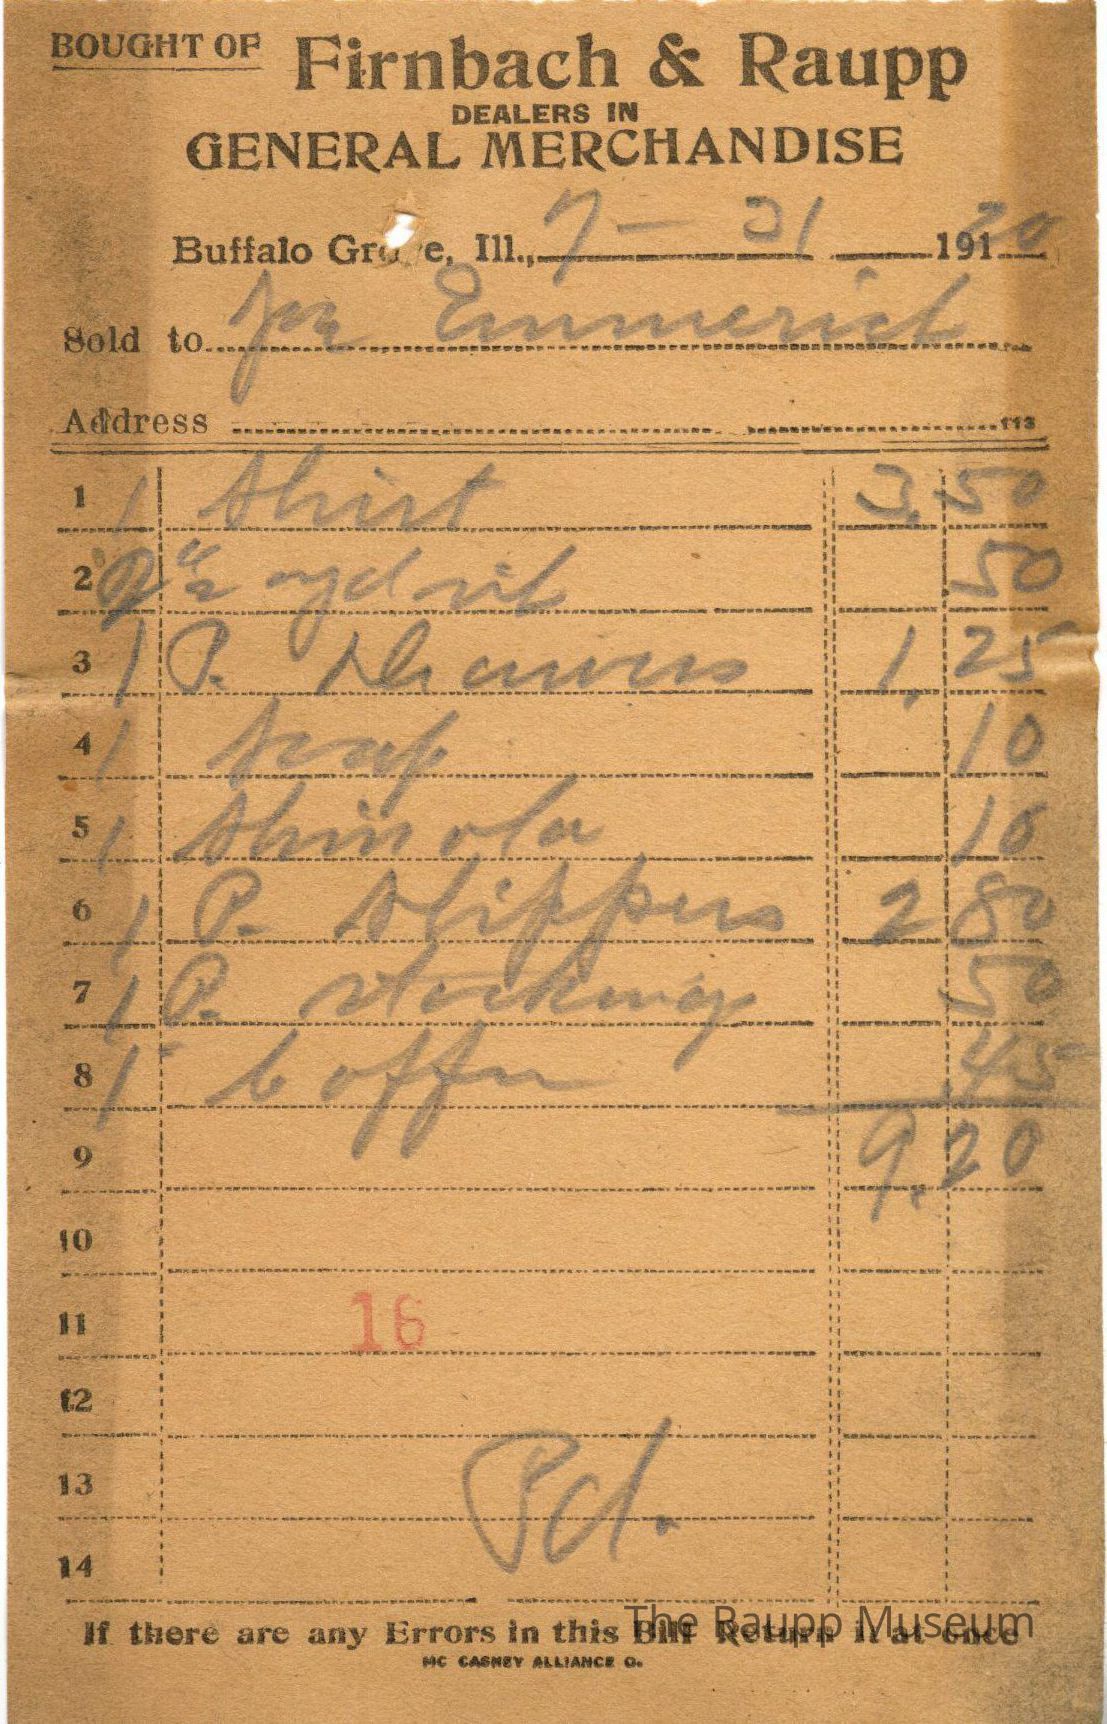 BOUGHT OF Firnbach & Raupp
DEALERS IN
GENERAL MERCHANDISE
Buffalo Gro e, Ill., 7-31 191 20
Sold to Emmerich
Address 113
1 1 Shirt 3.50
2 2 1/2 yd 50
3 1 P. Drawers 1.25
4 1 soap 10
5 1 Shinola 10
6 1 P. Slippers 2 80
7 1 P. stockings 50
8 1 Coffee .45
9 9.20
10
11 16
12
13 Pd.
14
If there are any Errors in this Bill Return it at once
The Raupp Museum
MC CASKEY ALLIANCE O.